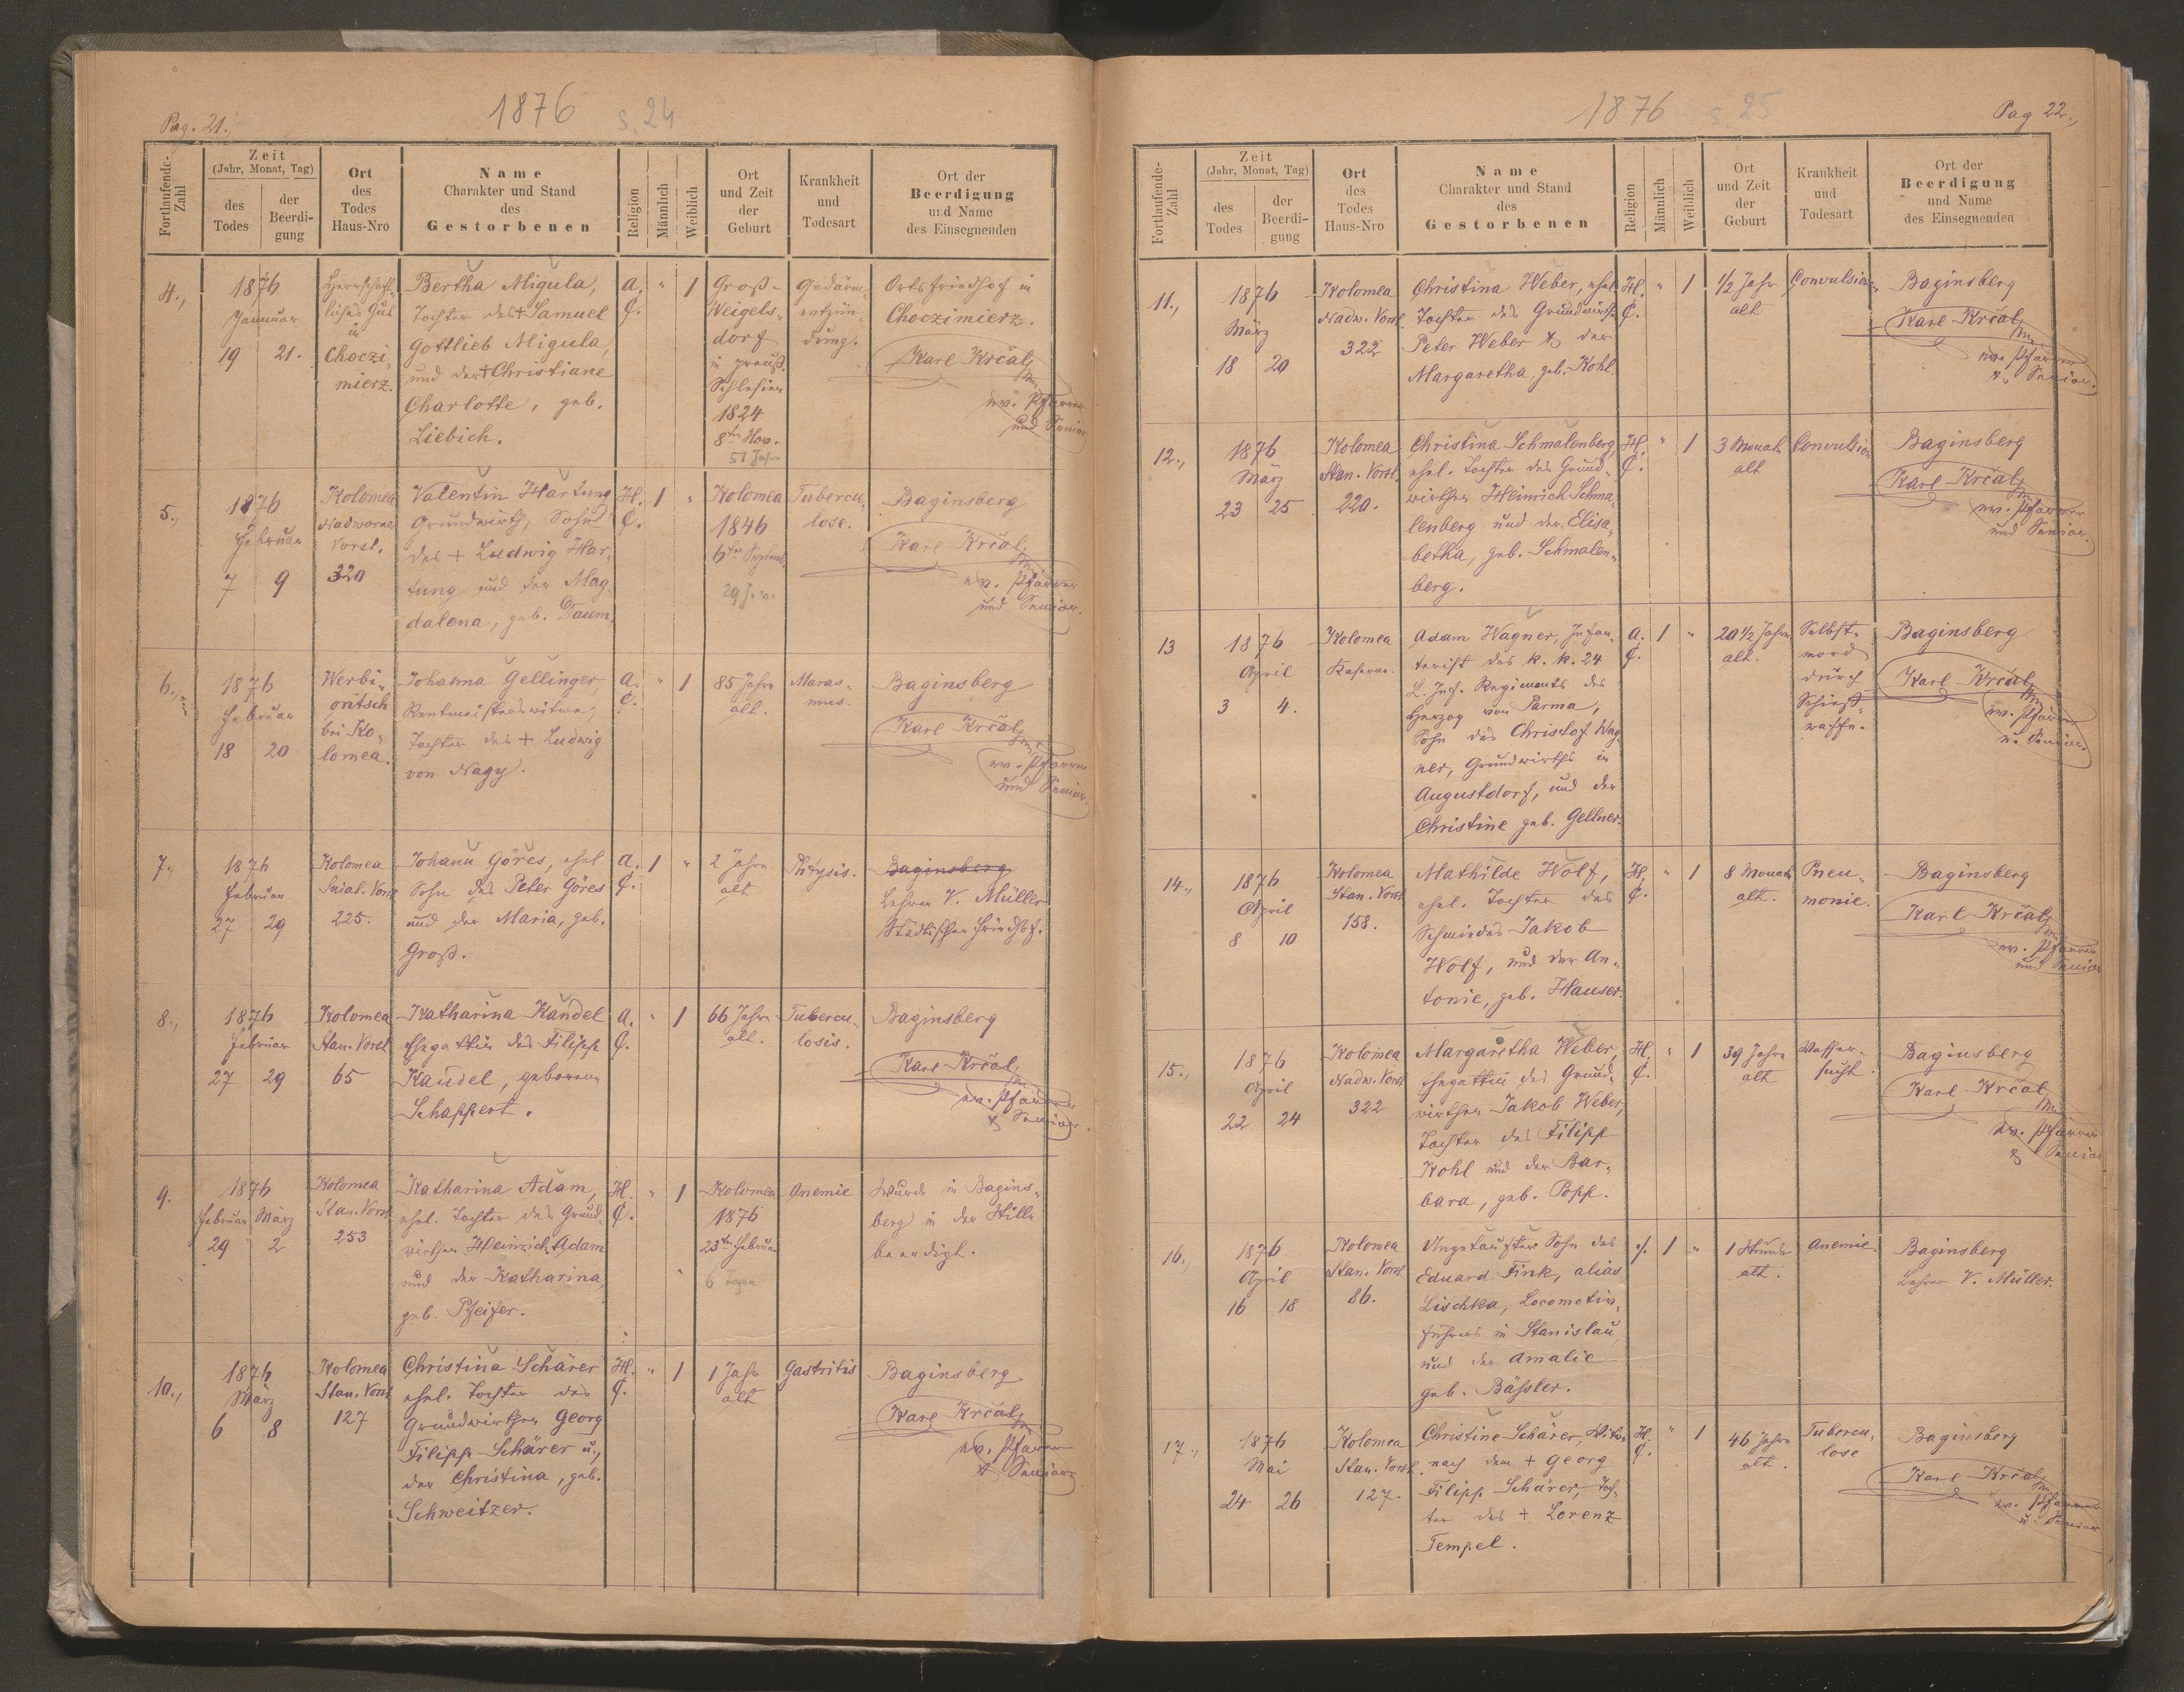 Pag. 21.
1876
s. 24
Fortlaufende-Zahl
Zeit
(Jahr, Monat, Tag)
des Todes
der Beerdigung
Ort des Todes Haus-Nro
Name
Charakter und Stand
des
Gestorbenen
Religion
Männlich
Weiblich
Ort und Zeit der Geburt
Krankheit und Todesart
Ort der
Beerdigung
und Name
des Einsegnenden
4.,
1876
Januar
19 21.
Herrschaft-
liches Gut
in
Choczi-
mierz.
Bertha Migula,
Tochter des + Samuel
Gottlieb Migula,
und der + Christiane
Charlotte, geb.
Liebich.
A. C.
" 1
Groß-
Weigels-
dorf
in preuß.
Schlesien
1824
8ten Nov.
51 Jahre
Gedärm-
entzün-
dung.
Ortsfriedhof in
Choczimierz.
Karl Krčal
ev. Pfarrer
und Senior
5.,
1876
Februar
7 9
Kolomea
Nadworna
Vorst.
320
Valentin Hartung
Grundwirth, Sohn
des + Ludwig Har-
tung und der Mag-
dalena, geb. Daum.
H. C.
1 "
Kolomea
1846
6ten Septemb.
29 J.
Tubercu-
lose.
Baginsberg
Karl Krčal
ev. Pfarrer
und Senior.
6.,
1876
Februar
18 20
Werbi-
oritsch
bei Ko-
lomea.
Johanna Gellinger,
Rentmeisterswitwe,
Tochter des + Ludwig
von Nagy.
A. C.
" 1
85 Jahre
alt.
Maras-
mus.
Baginsberg
Karl Krčal
ev. Pfarrer
und Senior.
7.,
1876
Februar
27 29
Kolomea
Sniat. Vorst
225.
Johann Göres, ehel.
Sohn des Peter Göres
und der Maria, geb.
Groß.
A. C.
1 "
2 Jahre
alt
Phtysis.
Baginsberg
Lehrer V. Müller
Städtischer Friedhof.
8.,
1876
Februar
27 29
Kolomea
Stan. Vorst
65
Katharina Kandel
Ehegattin des Filipp
Kandel, geborene
Schappert.
A. C.
" 1
66 Jahre
alt.
Tubercu-
losis.
Baginsberg
Karl Krčal
ev. Pfarrer
& Senior.
9.
1876
Februar März
29 2
Kolomea
Stan. Vorst
253
Katharina Adam,
ehel. Tochter des Grund-
wirthen Heinrich Adam
und der Katharina,
geb. Pfeifer.
H. C.
" 1
Kolomea
1876
23ten Februar
6 Tage
Anemie
Wurde in Bagins-
berg in der Stille
beerdigt.
10.,
1876
März
6 8
Kolomea
Stan. Vorst
127
Christina Schärer
ehel. Tochter des
Grundwirthen Georg
Filipp Schärer u.,
der Christina, geb.
Schweitzer.
H. C.
" 1
1 Jahr
alt
Gastritis
Baginsberg
Karl Krčal
ev. Pfarrer
& Senior
1876
s. 25
Pag 22.,
Fortlaufende-Zahl
Zeit
(Jahr, Monat, Tag)
des Todes
der Beerdigung
Ort des Todes Haus-Nro
Name
Charakter und Stand
des
Gestorbenen
Religion
Männlich
Weiblich
Ort und Zeit der Geburt
Krankheit und Todesart
Ort der
Beerdigung
und Name
des Einsegnenden
11.,
1876
März
18 20
Kolomea
Nadw. Vorst.
322
Christina Weber, ehel.
Tochter des Grundwirths
Peter Weber & der
Margaretha, geb. Kohl.
H. C.
" 1
1/2 Jahr
alt
Convulsionen
Baginsberg
Karl Krčal
ev. Pfarrer
& Senior.
12.,
1876
März
23 25
Kolomea
Stan. Vorst.
220.
Christina Schmalenberg,
ehel. Tochter des Grund-
wirthen Heinrich Schma-
lenberg und der Elisa-
betha, geb. Schmalen-
berg.
H. C.
" 1
3 Monate
alt
Convulsion
Baginsberg
Karl Krčal
ev. Pfarrer
und Senior.
13
1876
April
3 4.
Kolomea
Kaserne.
Adam Wagner, Infan-
terist des k. k. 24
L. Inf. Regiments des
Herzog von Parma,
Sohn des Christof Wag-
ner, Grundwirths in
Augustdorf, und der
Christine geb. Gellner.
A. C.
1 "
20 1/2 Jahre
alt.
Selbst-
mord
durch
Schieß-
waffe.
Baginsberg
Karl Krčal
ev. Pfarrer
u. Senior.
14.,
1876
April
8 10
Kolomea
Stan. Vorst
158.
Mathilde Wolf,
ehel. Tochter des
Schmiedes Jakob
Wolf, und der An-
tonie, geb. Hauser.
H. C.
" 1
8 Monate
alt.
Pneu-
monie.
Baginsberg
Karl Krčal
ev. Pfarrer
und Senior
15.,
1876
April
22 24
Kolomea
Nadw. Vorst
322
Margaretha Weber,
Ehegattin des Grund-
wirthen Jakob Weber,
Tochter des Filipp
Kohl und der Bar-
bara, geb. Popp.
H. C.
" 1
39 Jahre
alt
Wasser-
sucht.
Baginsberg
Karl Krčal
ev. Pfarrer
& Senior
16.,
1876
April
16 18
Kolomea
Stan. Vorst
86.
Ungetaufter Sohn des
Eduard Fink, alias
Lischka, Locomotiv-
führers in Stanislau
und der Amalie
geb. Bäßler.
1 "
1 Stunde
alt.
Anemie.
Baginsberg
Lehrer V. Müller.
17.,
1876
Mai
24 26
Kolomea
Stan. Vorst.
127.
Christine Schärer, Witwe
nach dem + Georg
Filipp Schärer, Toch-
ter des + Lorenz
Tempel.
H. C.
" 1
46 Jahre
alt.
Tubercu-
lose
Baginsberg
Karl Krčal
ev. Pfarrer
u. Senior